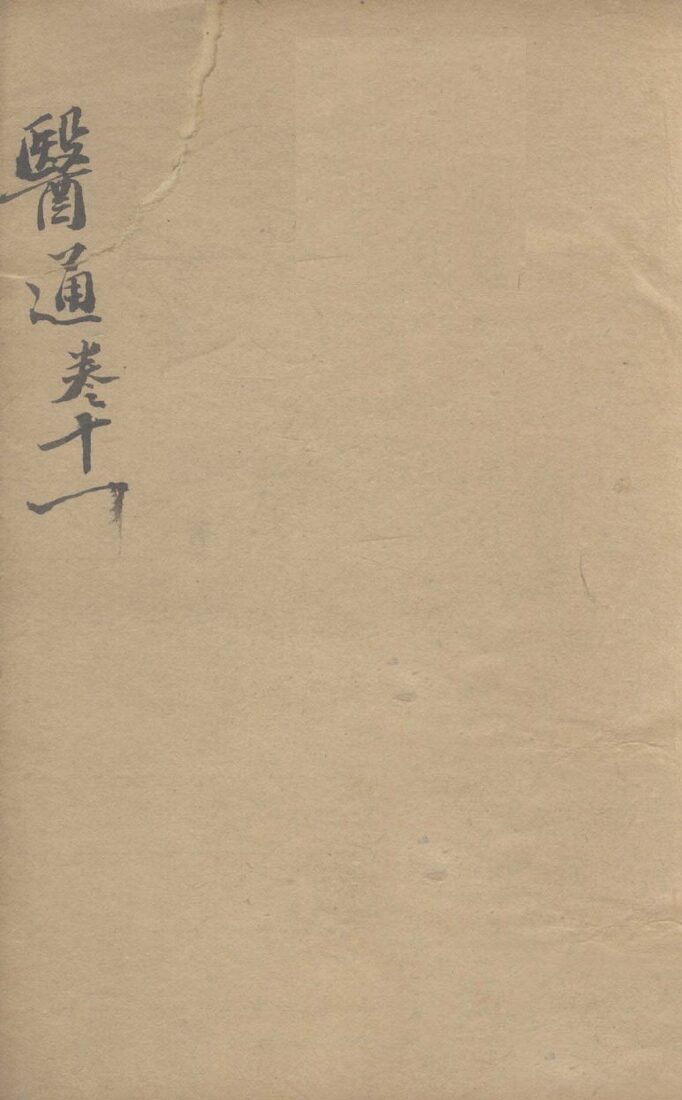 醫通卷十一